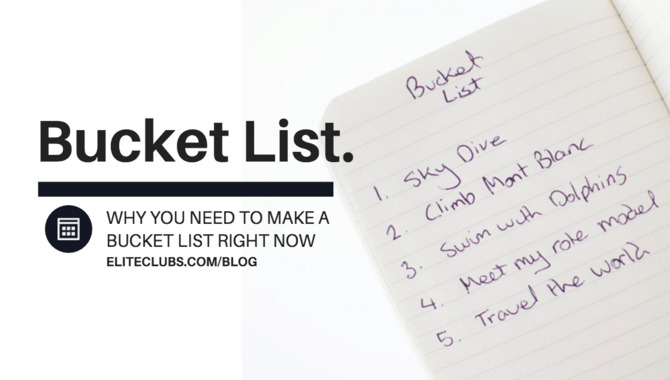 Bucket List.
WHY YOU NEED TO MAKE A
BUCKET LIST RIGHT NOW
ELITECLUBS.COM/BLOG
Bucket
List
1. Sky Dive
2. Climb Mont Blanc
3. Swim with Dolphins
4. Meet my role model
5. Travel the world